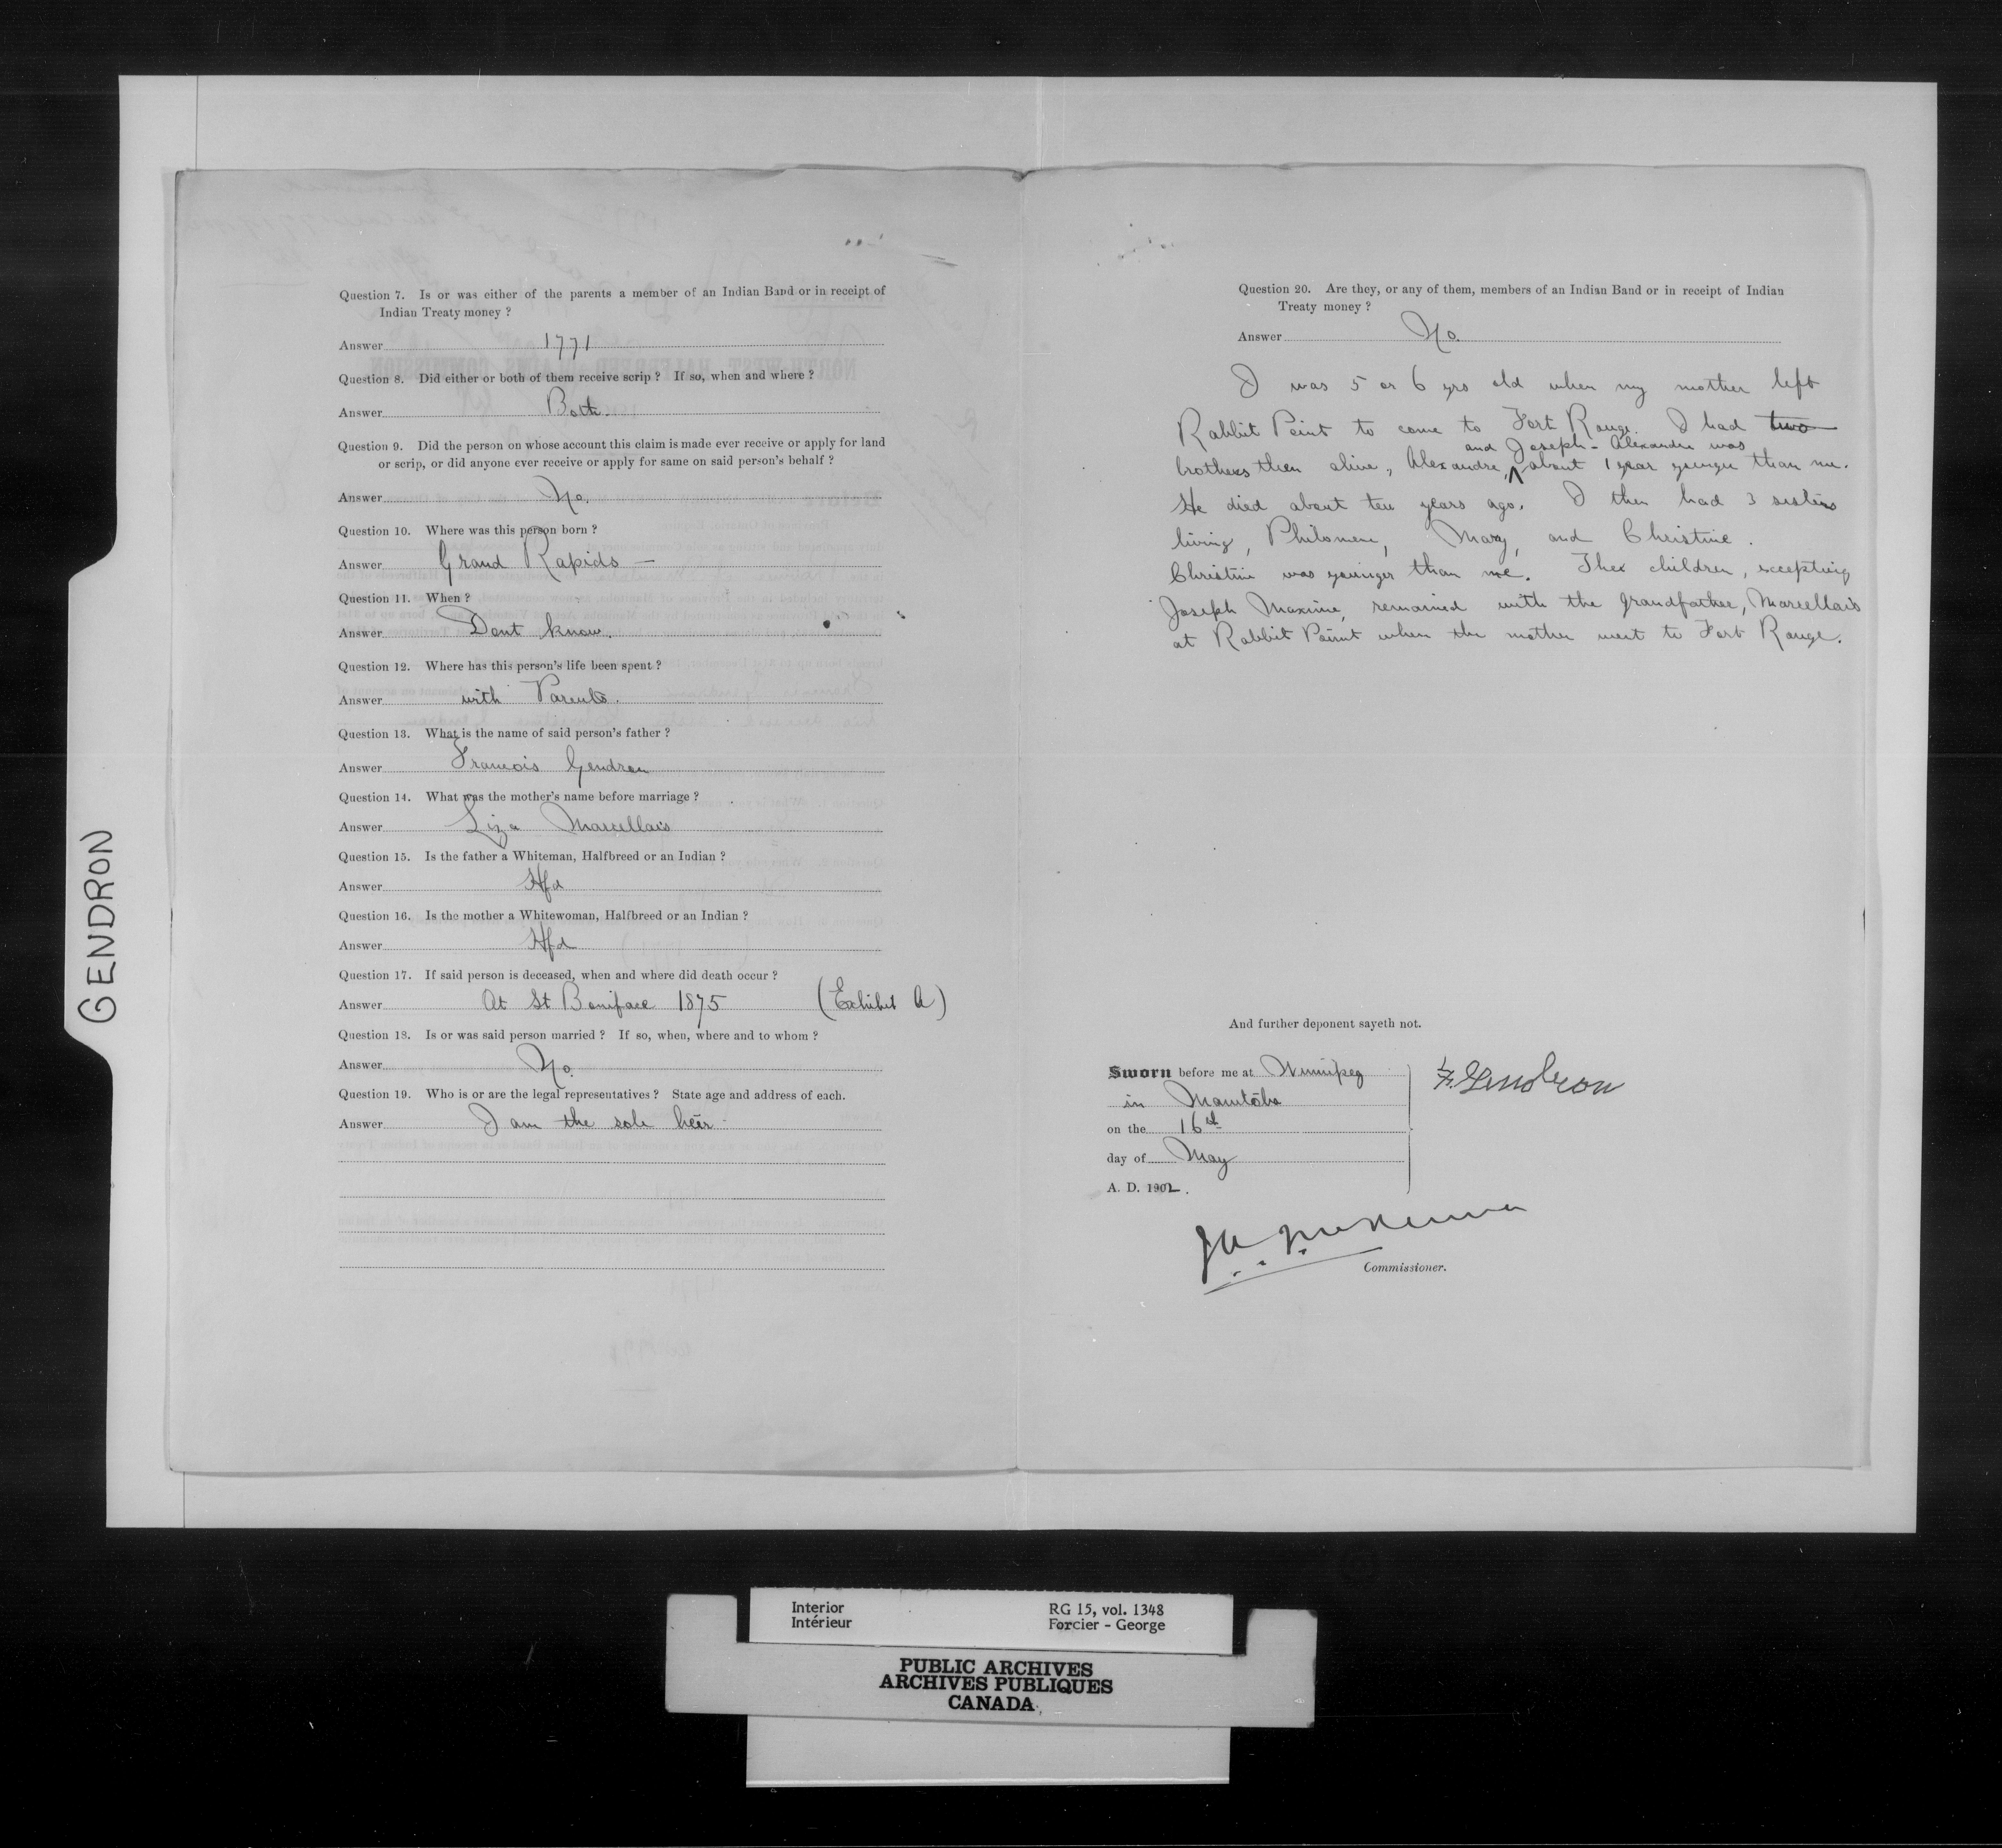 GENDRON
Question 7. Is or was either of the parents a member of an Indian Band or in receipt of
Indian Treaty money ?
Answer 1771
Question 8. Did either or both of them receive scrip ? If so, when and where ?
Answer Both.
Question 9. Did the person on whose account this claim is made ever receive or apply for land
or scrip, or did anyone ever receive or apply for same on said person's behalf ?
Answer No.
Question 10. Where was this person born ?
Answer Grand Rapids —
Question 11. When ?
Answer Dont know.
Question 12. Where has this person's life been spent ?
Answer with Parents.
Question 13. What is the name of said person's father ?
Answer Francois Gendron
Question 14. What was the mother's name before marriage ?
Answer Liza Marcellais
Question 15. Is the father a Whiteman, Halfbreed or an Indian ?
Answer Hfd
Question 16. Is the mother a Whitewoman, Halfbreed or an Indian ?
Answer Hfd
Question 17. If said person is deceased, when and where did death occur ?
Answer At St Boniface 1875 (Exhibit A)
Question 18. Is or was said person married ? If so, when, where and to whom ?
Answer No.
Question 19. Who is or are the legal representatives ? State age and address of each.
Answer I am the sole heir
Question 20. Are they, or any of them, members of an Indian Band or in receipt of Indian
Treaty money ?
Answer No.
I was 5 or 6 yrs old when my mother left
Rabbit Point to come to Fort Rouge. I had two
and Joseph - Alexandre was
brothers then alive, Alexandre, about 1 year younger than me.
He died about ten years ago. I then had 3 sisters
living, Philomene, Mary, and Christine.
Christine was younger than me. Thex children, excepting
Joseph Maxime, remained with the grandfather, Marcellais
at Rabbit Point when the mother went to Fort Rouge.
And further deponent sayeth not.
Sworn before me at Winnipeg
in Manitoba
on the 16th
day of May
A. D. 1902.
F. Gendron
JA McKenna
Commissioner.
Interior RG 15, vol. 1348
Intérieur Forcier - George
PUBLIC ARCHIVES
ARCHIVES PUBLIQUES
CANADA